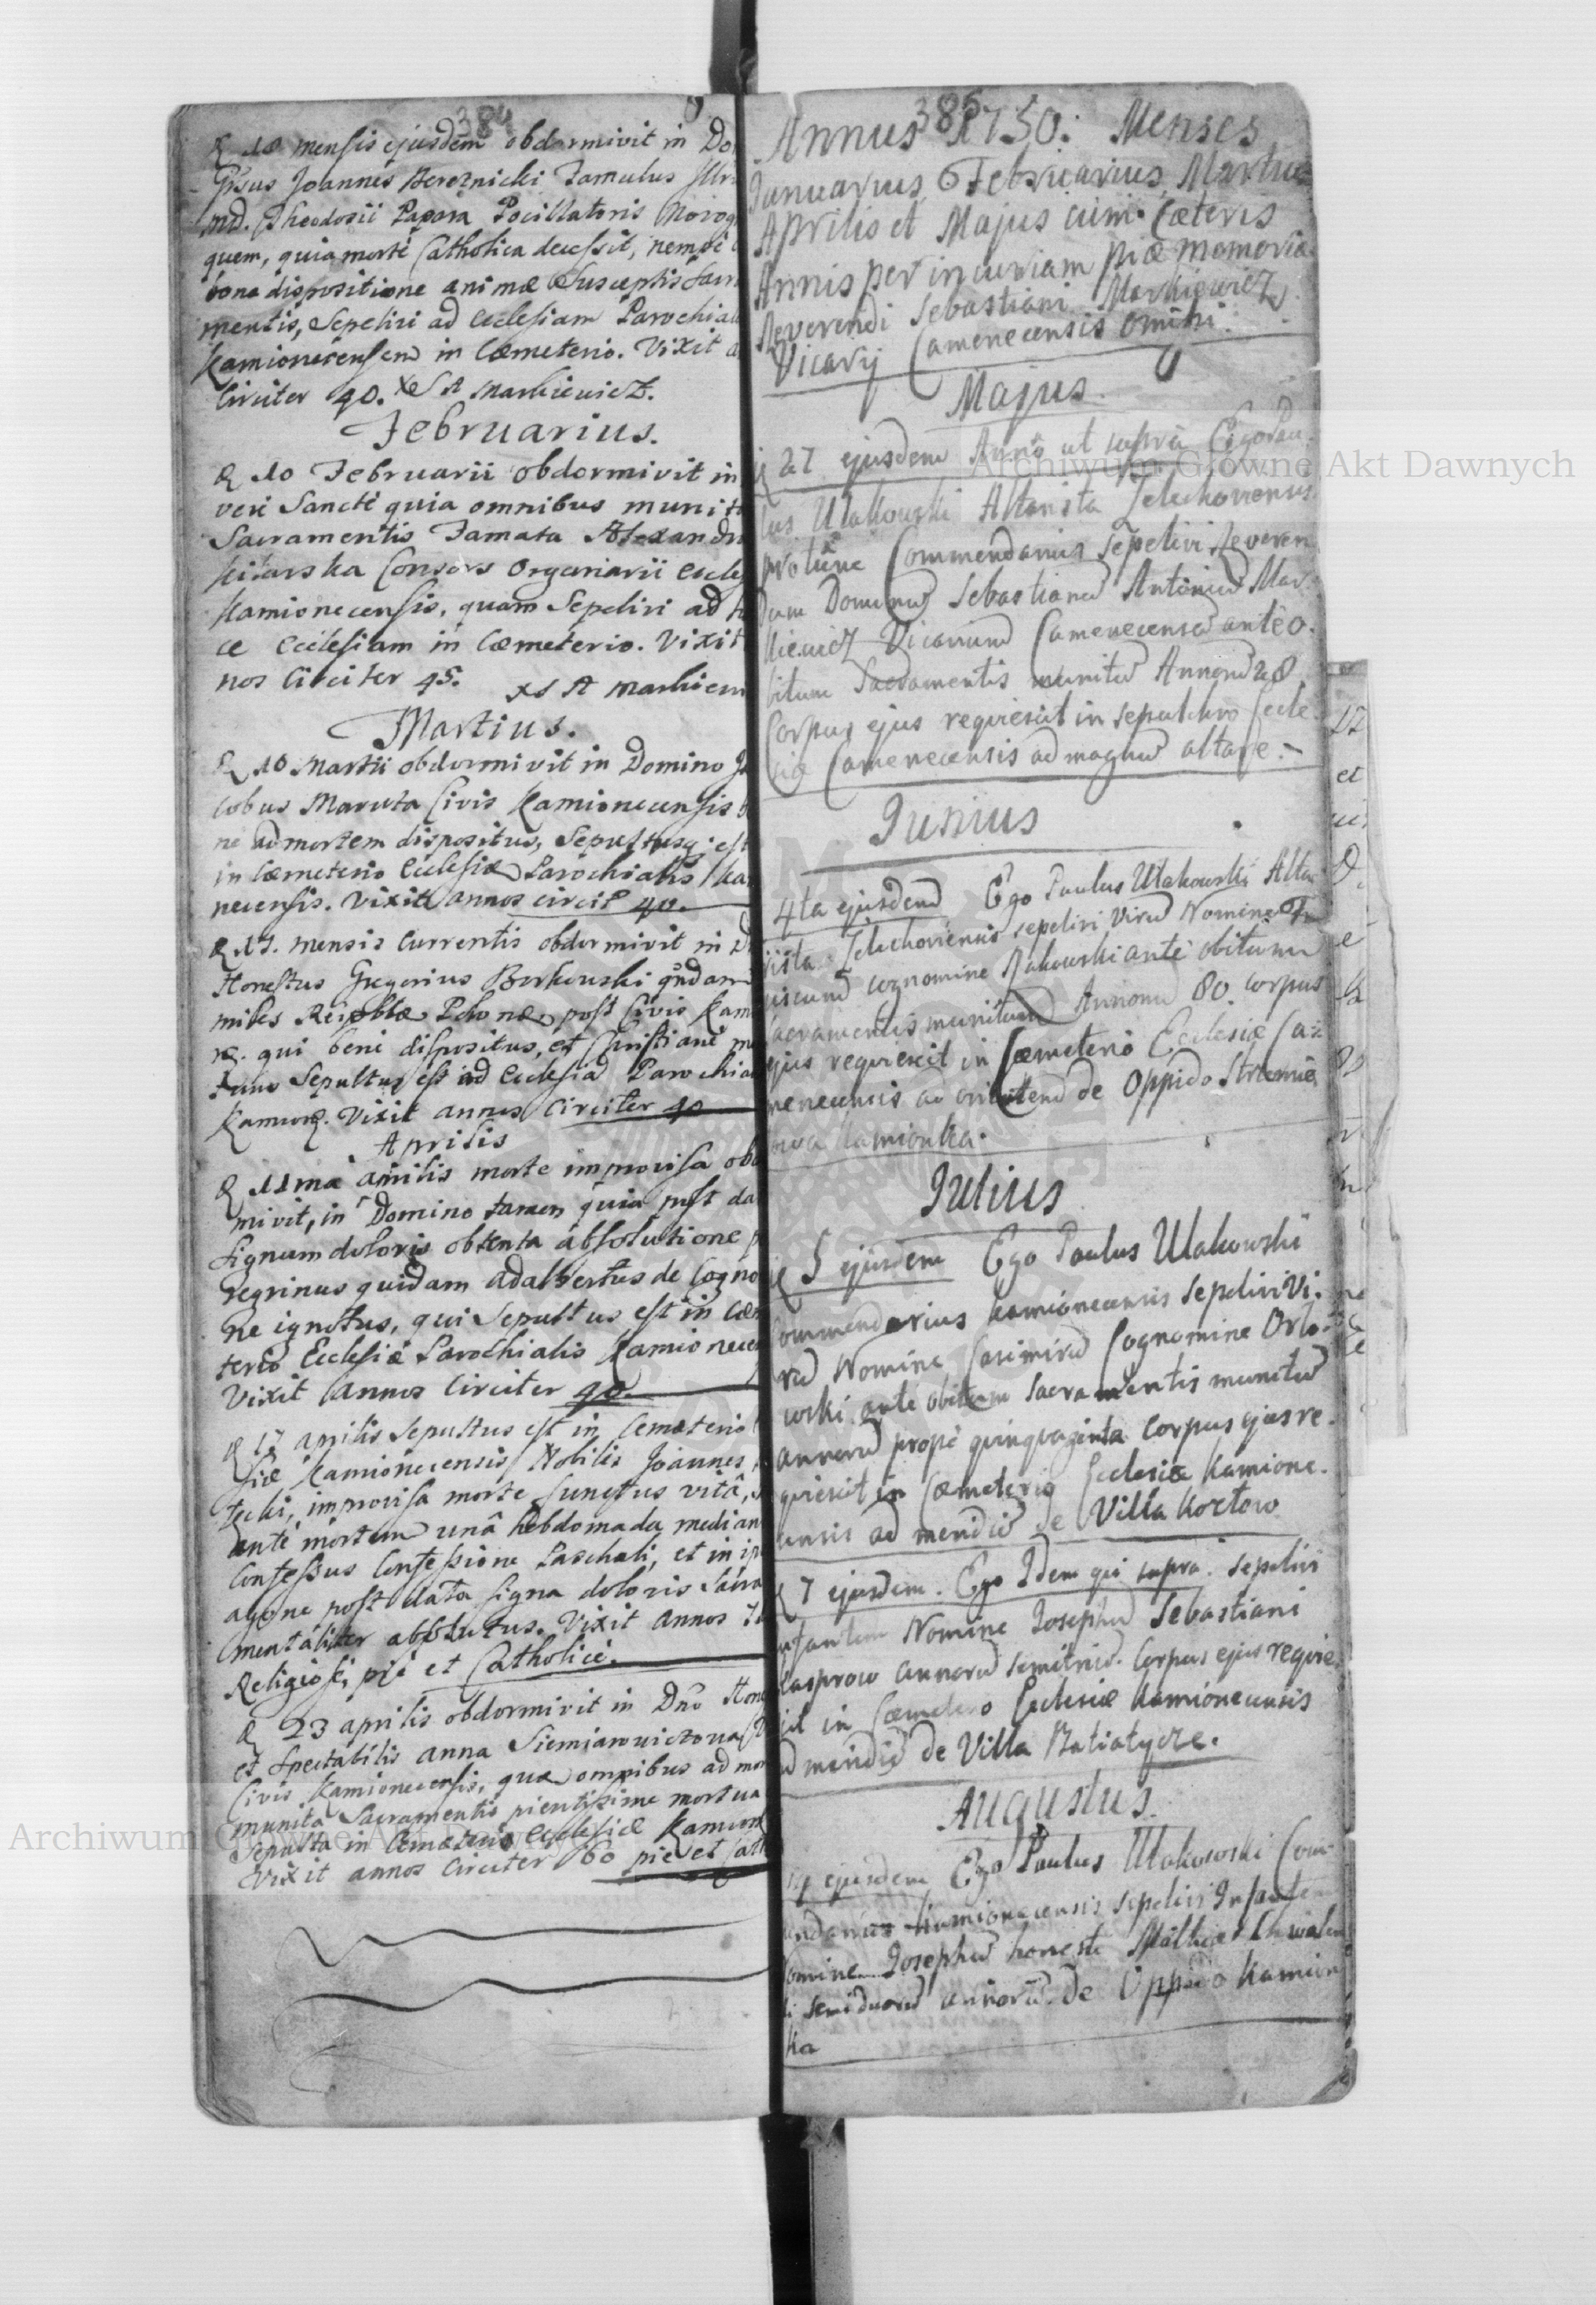 384
18 mensis ejusdem obdormivit in Do
Joannes Bereznicki Famulus Illr
md. Theodosii Papara Pocillatoris Novog
quem, quia morte Catholica decessit, nempe
bona dispositione animæ Susceptis Sacra
mentis, Sepelivi ad Ecclesiam Parochial
Kamionecensem in Cæmeterio. Vixit a
Circiter 40. XS A Markiewicz.
Februarius.
10 Februarii obdormivit in
vere Sancté quia omnibus munit
Sacramentis Famata Alexandr
Kitarska Consors Organarii Eccle
Kamionecensis, quam Sepelivi ad h
ce Ecclesiam in Cæmeterio. Vixit
nos Circiter 45. XS A Markiew
Martius.
10 Martii obdormivit in Domino Ja
cobus Maruta Civis Kamionecensis b
ne ad mortem dispositus, Sepultusq; est
in Cæmeterio Ecclesiæ Parochialis Ka
necensis. Vixit annos circit 40.
17. mensis Currentis obdormivit in D
Honestus Gregorius Borkowski qndam
miles Reipblæ Polonæ, post Civis Kam
qui bene dispositus, et Christiané m
Sepultus est ad Ecclesia Parochial
Kamion. Vixit annos Circiter 40
Aprilis
11ma aprilis morte improvisa obd
mivit, in Domino tamen quia post da
signum doloris obtenta absolutione p
regrinus quidam Adalbertus de Cogno
ne ignotus, qui Sepultus est in Cæm
terio Ecclesiæ Parochialis Kamionecen
Vixit annos Circiter 40.
17 aprilis Sepultus est in Cemæterio
siæ Kamionecensis Nobilis Joannes
improvisa morte functus vitâ,
anté mortem unâ hebdomada median
Confessus Confessione Paschali, et in ip
agone post data signa doloris Sacra
mentaliter absolutus. Vixit annos 7
Religiosé, pié et Catholicé.
23 aprilis obdormivit in Dno Hon
et Spectabilis Anna Siemianowiczowa
Civis Kamionecensis, quæ omnibus ad mor
munita Sacramentis pientissime mortua
Sepulta in Cemæterio Ecclesiæ Kamion
Vixit annos Circiter 60 pié et Cath
385
Annus 1750. Menses
Januarius, Februarius, Martius
Aprilis et Majus cum Cæteris
Annis per incuriam piæ memoriæ
Reverendi Sebastiani Markiewicz
Vicarij Camenecensis omissi.
Majus.
27 ejusdem Anno ut supra Ego Pau
lus Ulakowski Altarista Zelechoviensis
protunc Commendarius sepelivi Reveren
dum Dominu Sebastianu Antoniu Mar
kiewicz Vicarium Camenecensem ante o
bitum Sacramentis munitu Annoru 28
Corpus ejus requiescit in sepulchro Eccle
siæ Camenecensis ad magnu altare.
Junius
4ta ejusdem Ego Paulus Ulakowski Alta
rista Zelechoviensis sepelivi Viru Nomine Fra
ciscum cognomine Rakowski anté obitum
Sacramentis munitum Annoru 80. corpus
ejus requiescit in Cæmeterio Ecclesiæ Ca
menecensis ad orientem de Oppido Strumie
owa Kamionka.
Julius
5 ejusdem Ego Paulus Ulakowski
Commendarius Kamionecensis sepelivi Vi
ru Nomine Casimiru Cognomine Orlo
wski ante obitum Sacramentis munitu
annoru propé quinquaginta Corpus ejus re
quiescit in Cæmeterio Ecclesiæ Kamione
censis ad meridie de Villa Kozłow
7 ejusdem. Ego Idem qui supra. sepelivi
infantem Nomine Josephu Sebastiani
Kasprow annoru Corpus ejus requie
scit in Cæmeterio Ecclesiæ Kamionecensis
ad meridie de Villa Batiatycze.
Augustus.
ejusdem Ego Paulus Ulakowski Com
mendarius Kamionecensis sepelivi Infantem
Nomine Josephu honesti Mathiæ
annoru de Oppido Kamion
ka
Archiwum Główne Akt Dawnych
Archiwum Główne Akt Dawnych